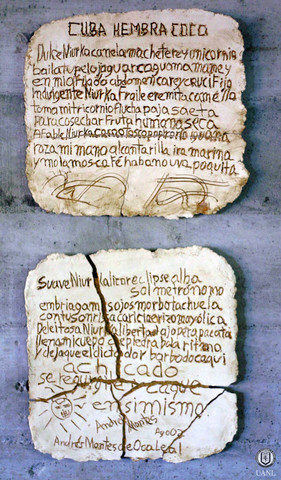 CUBA HEMBRA COCO
Dulce Niurka canela machetere y unicornia
baila tu pelo jaguar caguama mane y
en mi ofri do abdomen carey crucifijo
Indulgente Niurka Fraile eremita cané lla
toma mi tricornio Flecha paja saeta
para cosechar Fruta humana seca
Afable Niurka iguana
roza mi mano alcantarilla ire marina
y mola mosca fé habano uva poquita
Suave Niurka licor eclipse alba
sal metrónomo
embriagam sojos morbo tachuela
con tu sonrisa caricia
Deleitosa Niurka libertad ajo pera
llena mi cuepo de piedra bola ritana
y deja que el dictador barbado caqui
achicado
se requine caqua
ensimismo
André Montes
Ago 07
Andrés Montes de Oca Leal
UANL